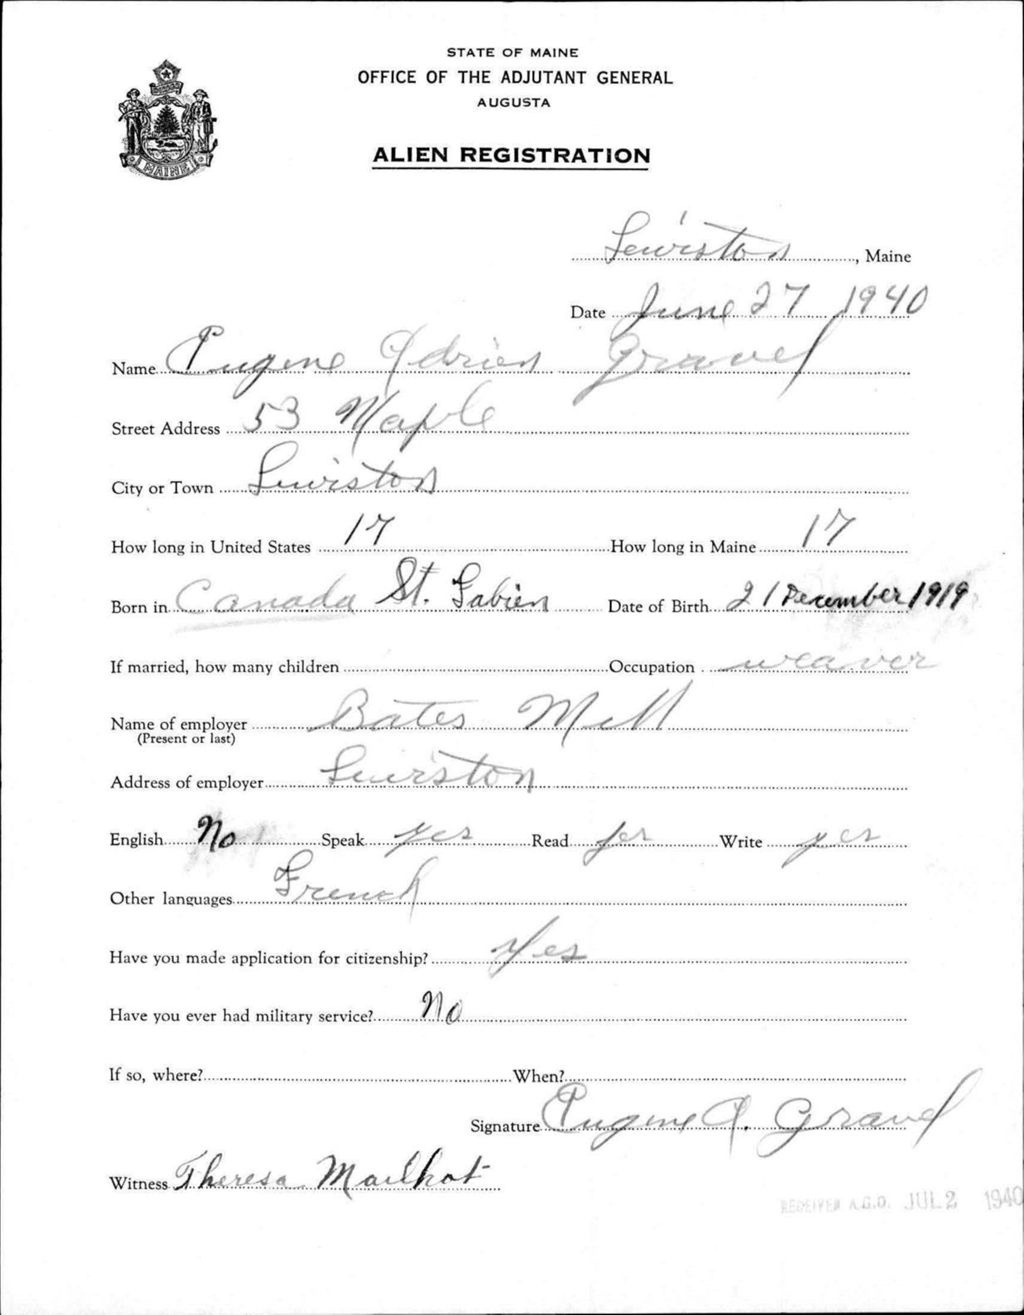 STATE OF MAINE
OFFICE OF THE ADJUTANT GENERAL
AUGUSTA
ALIEN REGISTRATION
MAINE
Lewiston, Maine
Date June 27, 1940
Name Eugene Adrien Gravel
Street Address 53 Maple
City or Town Lewiston
How long in United States 17 How long in Maine 17
Born in Canada St. Gabien Date of Birth 21 December 1919
If married, how many children Occupation weaver
Name of employer Bates Mill
(Present or last)
Address of employer Lewiston
English No Speak yes Read yes Write yes
Other languages French
Have you made application for citizenship? Yes
Have you ever had military service? No
If so, where? When?
Signature Eugene A. Gravel
Witness Theresa Mailhot
RECEIVED A.G.O. JUL 2 1940